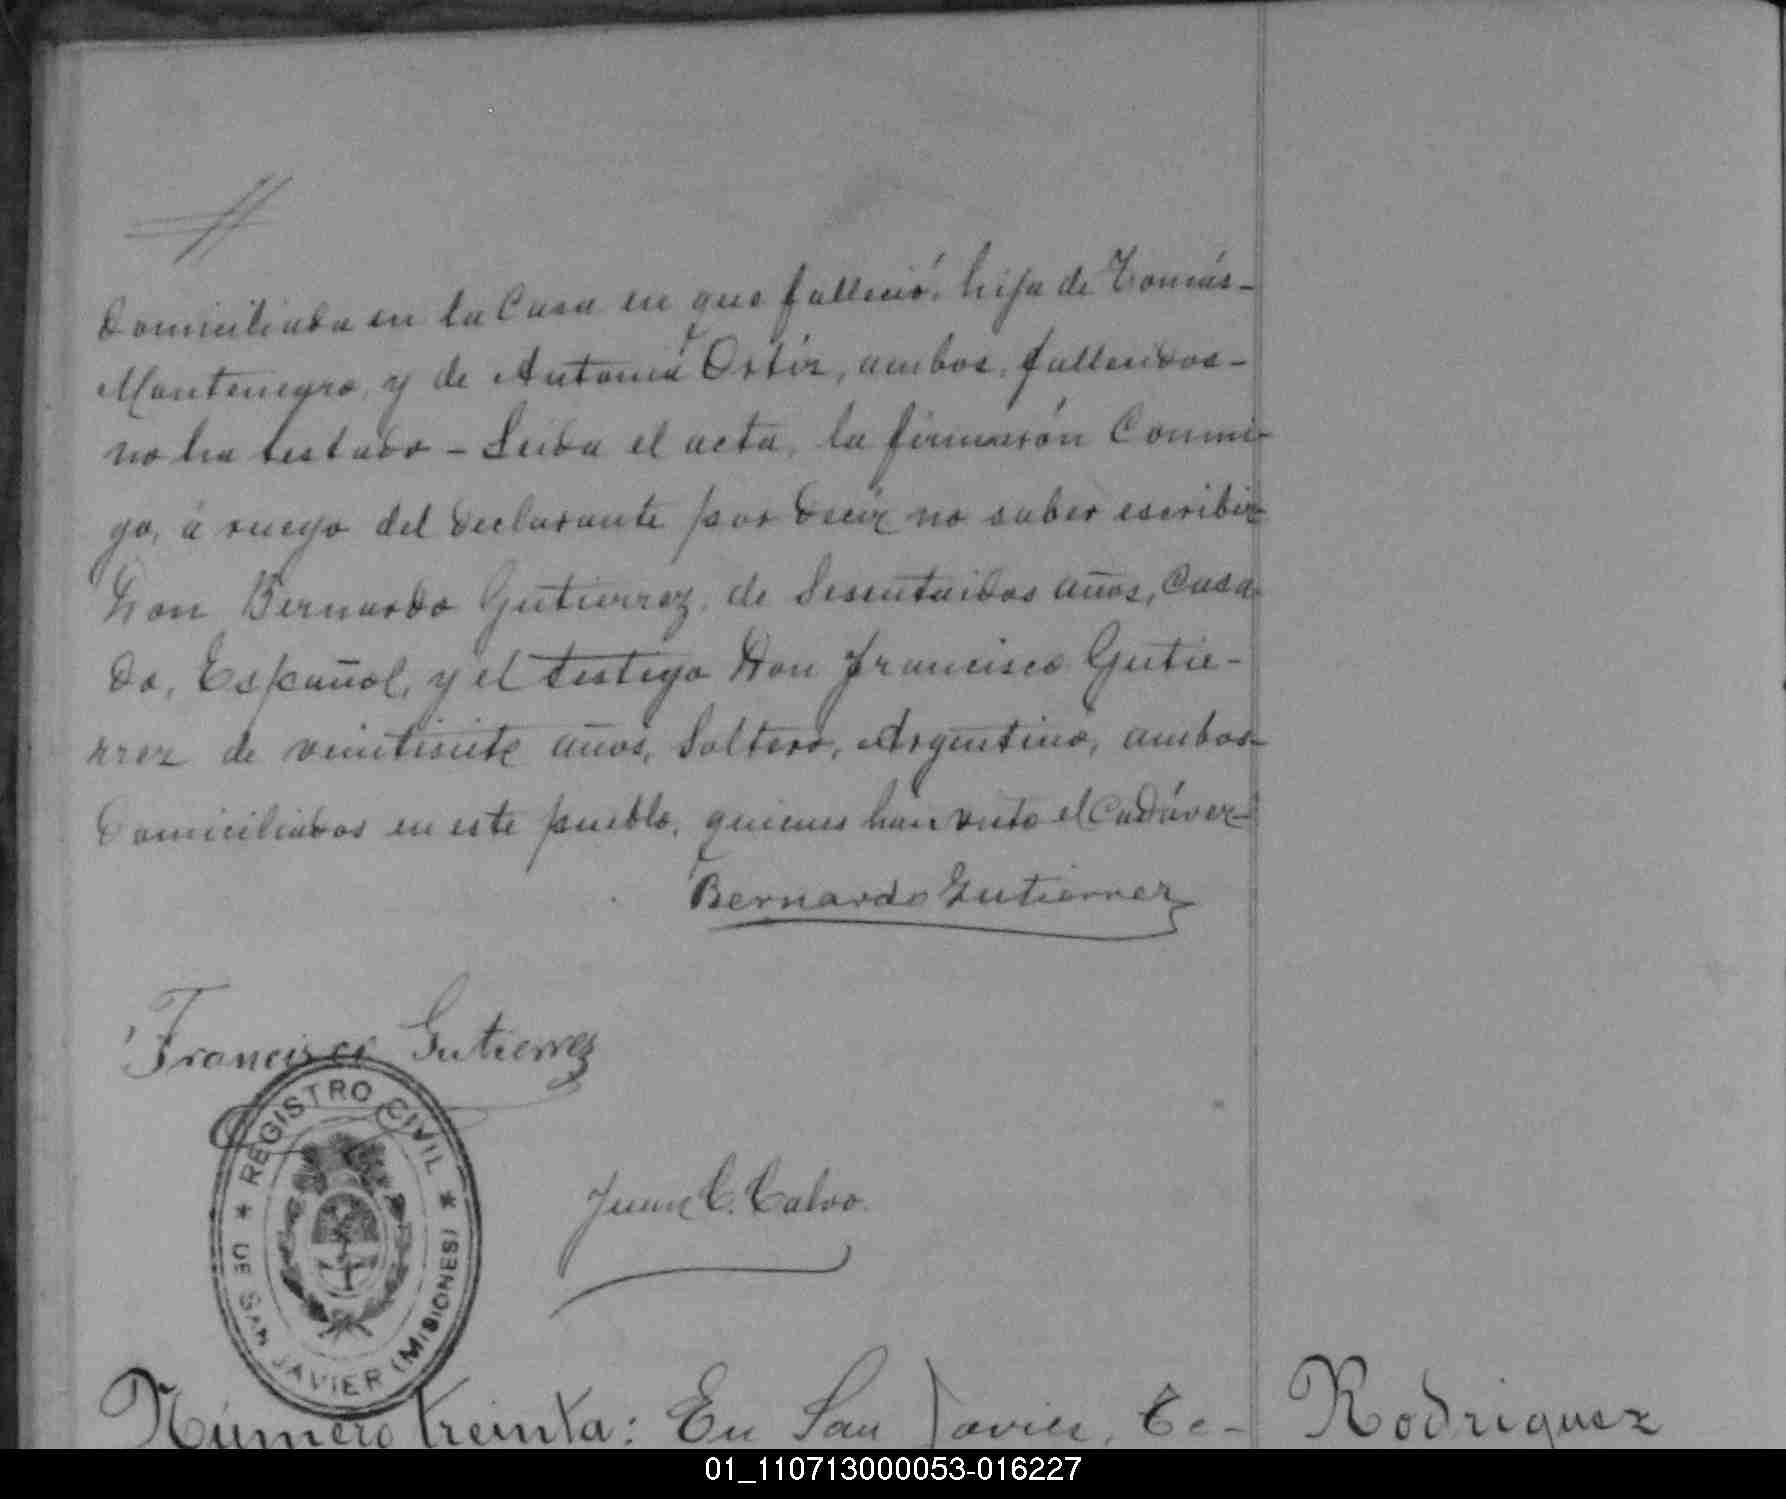 domiciliada en la Casa en que falleció, hija de Tomás-
Montenegro, y de Antonia Ortíz, ambos, fallecidos-
no ha testado - Leida el acta, la firmarón Conmi-
go, á ruego del declarante por decir no saber escribir-
Don Bernardo Gutierrez, de Sesentaidos años, Casa-
do, Español, y el testigo Don Francisco Gutie-
rrez de veintisiete años, Soltero, Argentino, ambos-
domiciliados en este pueblo, quienes han visto el Cadáver-
Bernardo Gutierrez
Francisco Gutierrez
REGISTRO CIVIL
* DE SAN JAVIER (MISIONES) *
Juan C. Calvo.
Número treinta: En San Javier, Te-
Rodriguez
01_110713000053-016227